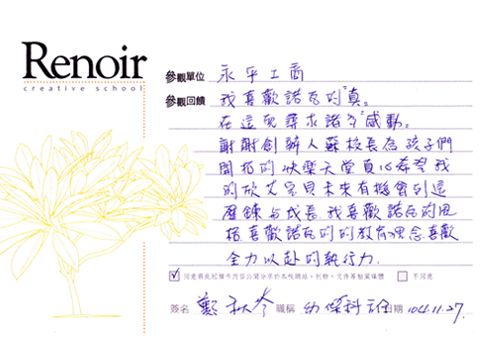 Renoir
creative school
參觀單位 永平工商
參觀回饋 我喜歡諾瓦的"真"。
在這兒尋求諸多"感動。
謝謝創辦人蘇校長為孩子們
開拓的快樂天堂真心希望我
的欣 兒未來有機會到這
磨鍊与成長.我喜歡諾瓦的風
格.喜歡諾瓦的的教育理念喜歡
全力以赴的執行力.
同意將此回饋卡內容公開分享於本校網站、刊物、文件等相關媒體 不同意
簽名 鄭秋岑 職稱 幼保科 日期 104.11.27.